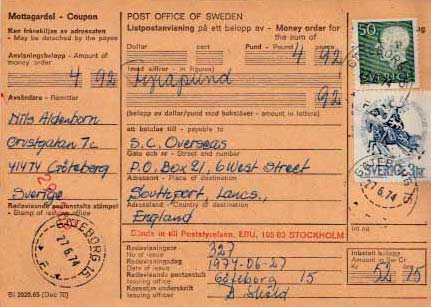 Mottagardel - Coupon
Kan frånskiljas av adressaten
- May be detached by the payee
Anvisningsbelopp - Amount of
money order
4 92
Avsändare - Remitter
Nils Aldenborn
41474 Göteborg
Sverige
Redovisande postanstalts stämpel
- Stamp of issuing office
GÖTEBORG 15
27.6.74
Bl 2020.05 (Dec 70)
POST OFFICE OF SWEDEN
Listpostanvisning på ett belopp av - Money order for
the sum of
Dollar
cent
Pund - Pound
4 92
(med siffror - in figures)
Fyrapund
92
(belopp av dollar/pund med bokstäver - amount in letters)
att betalas till - payable to
S.C. Overseas
Gata och nr - Street and number
P.O. Box 21, 6 West Street
Adressort - Place of destination
Southport, Lancs.,
Adressland - Country of destination
England
Sänds in till Poststyrelsen, ERU, 105 03 STOCKHOLM
Redovisningsnr
No of issue
327
Redovisningsdag
Date of issue
1974-06-27
Redovisande postanstalt
Issuing office
Göteborg 15
Kassörens underskrift
Issuing officer
50
SVERIGE
GÖTEBORG 15
SVERIGE
GÖTEBORG 15
27.6.74
Inbetalt belopp
Amount in Sw Cr
Kr
52 75